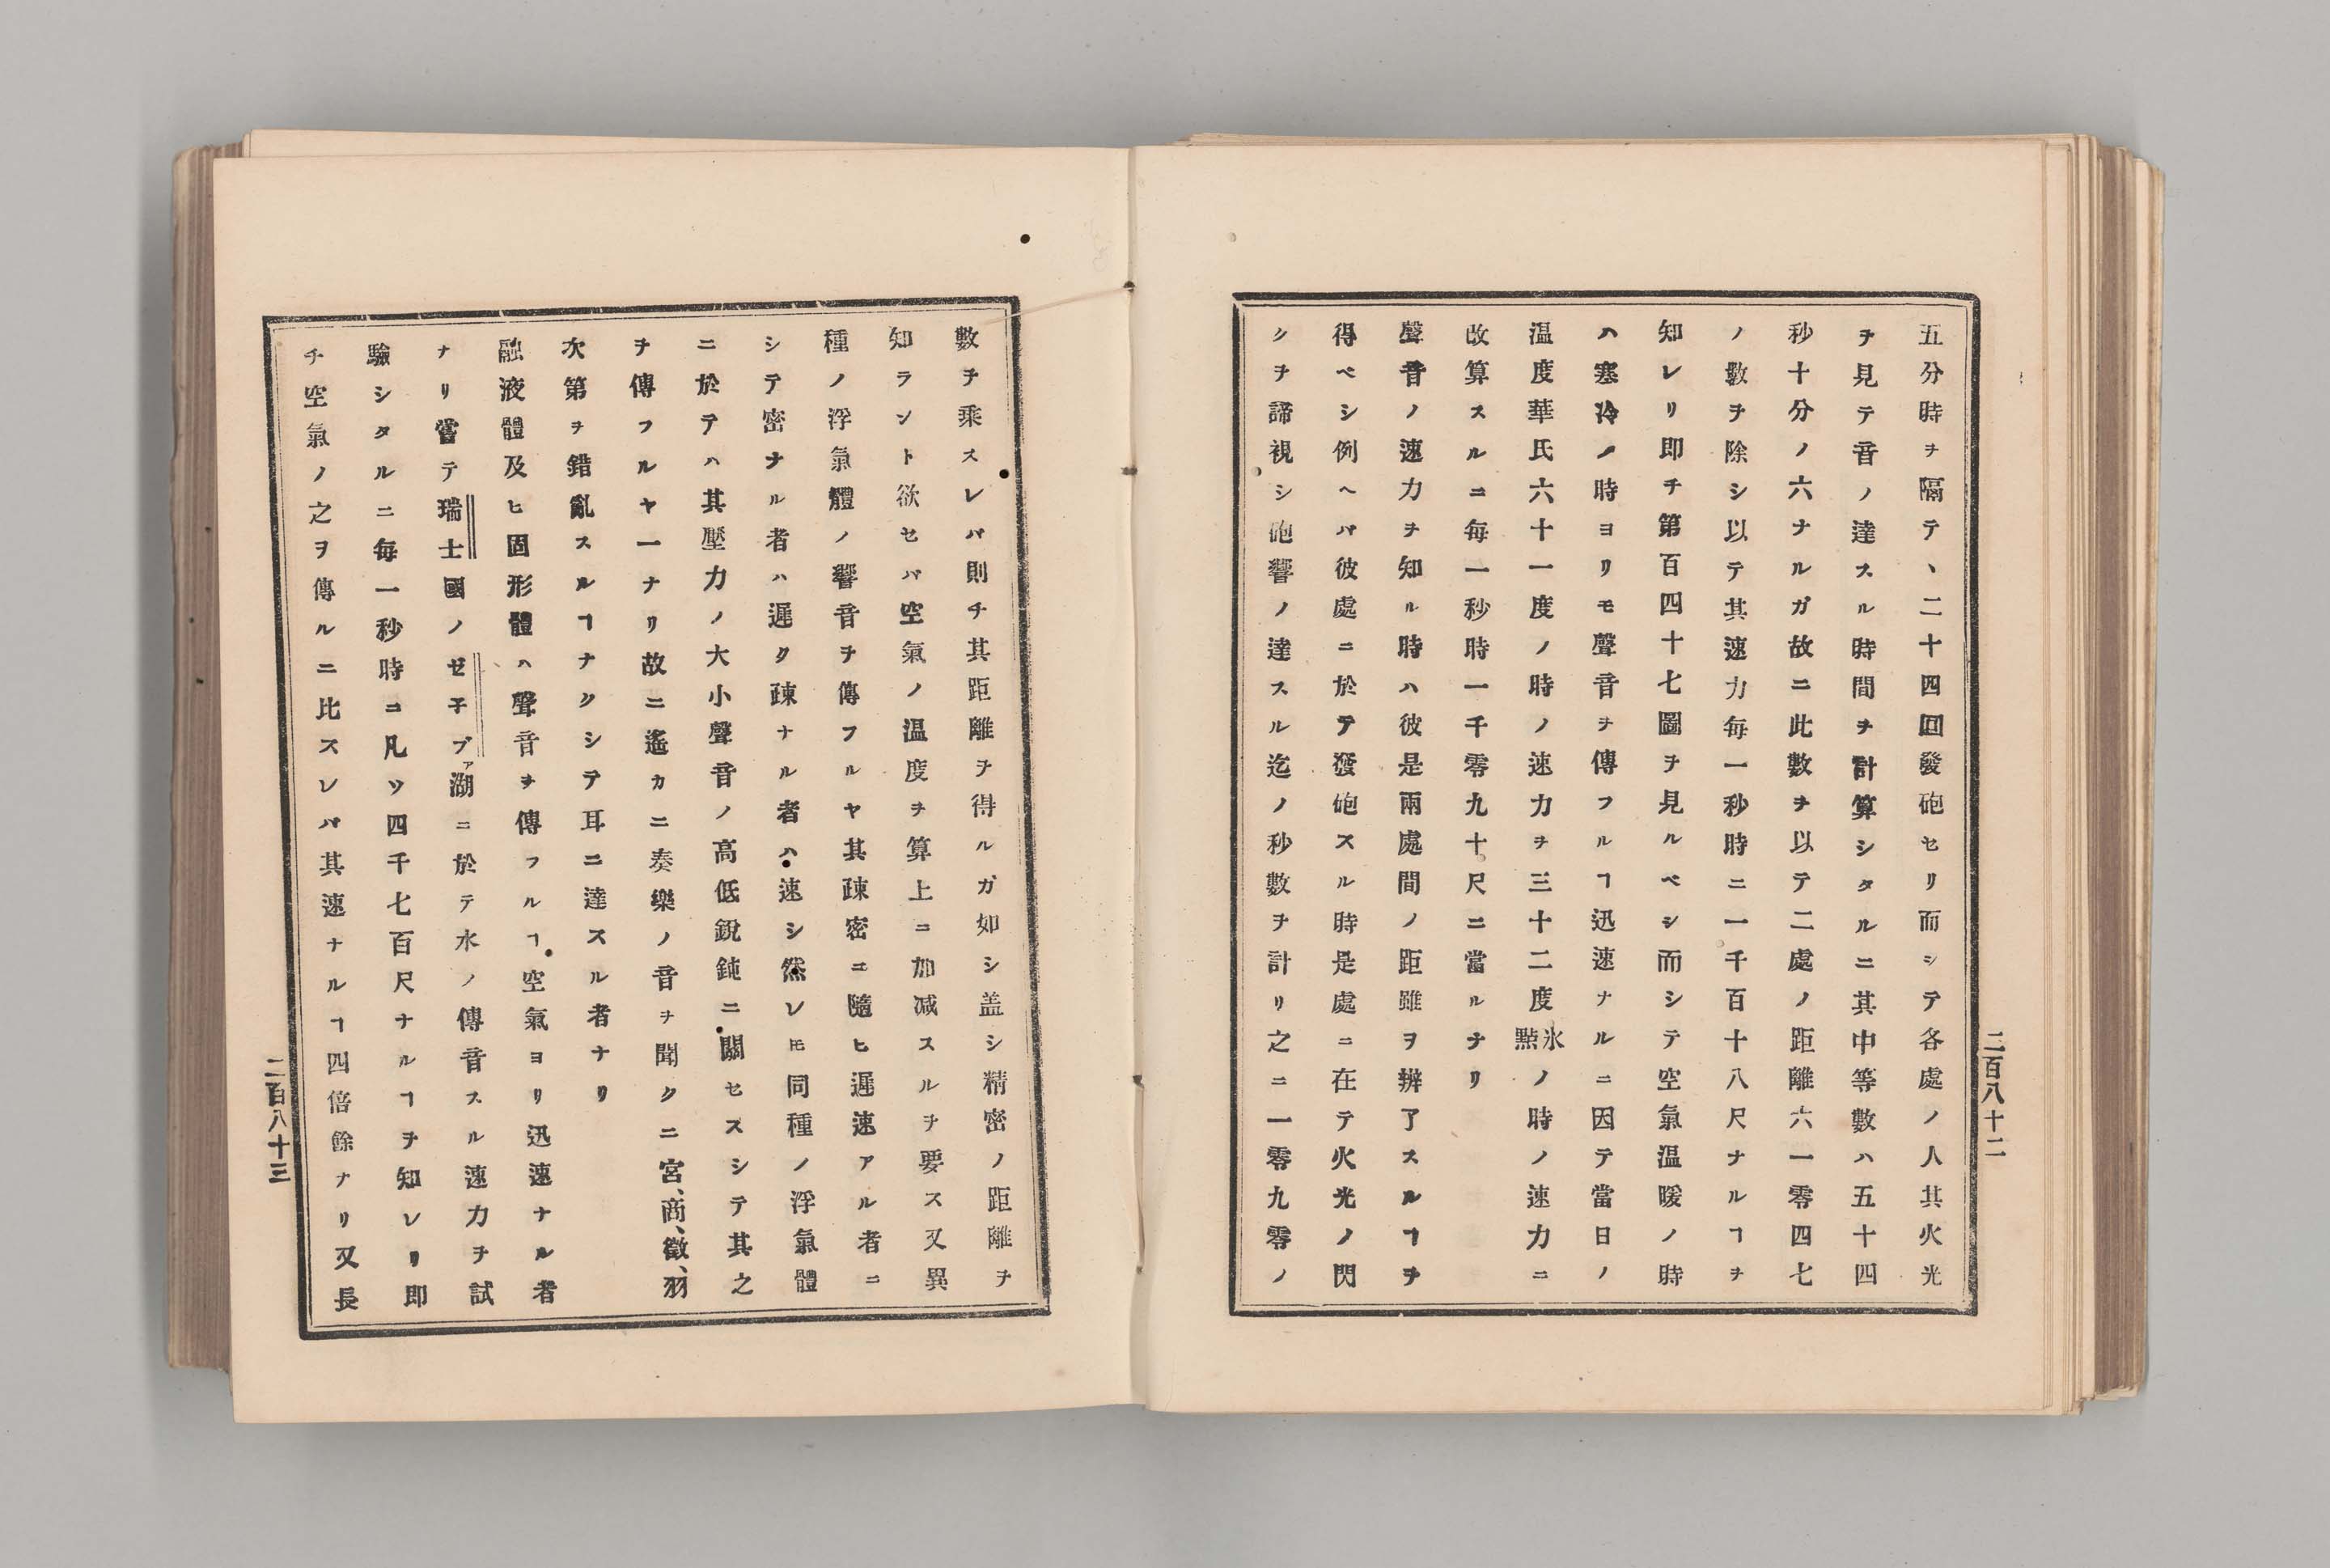 五分時ヲ隔テヽ二十四回發砲セリ而シテ各處ノ人其火光
ヲ見テ音ノ達スル時間ヲ計算シタルニ其中等數ハ五十四
秒十分ノ六ナルガ故ニ此數ヲ以テ二處ノ距離六一零四七
ノ數ヲ除シ以テ其速力毎一秒時ニ一千百十八尺ナルヿヲ
知レリ即チ第百四十七圖ヲ見ルベシ而シテ空氣温暖ノ時
ハ寒冷ノ時ヨリモ聲音ヲ傳フルヿ迅速ナルニ因テ當日ノ
温度華氏六十一度ノ時ノ速力ヲ三十二度氷點ノ時ノ速力ニ
改算スルニ毎一秒時一千零九十尺ニ當ルナリ
聲音ノ速力ヲ知ル時ハ彼是兩處間ノ距離ヲ辨了スルヿヲ
得ベシ例ヘバ彼處ニ於テ發砲スル時是處ニ在テ火光ノ閃
クヲ諦視シ砲響ノ達スル迄ノ秒數ヲ計リ之ニ一零九零ノ
二百八十二
數ヲ乘スレバ則チ其距離ヲ得ルガ如シ盖シ精密ノ距離ヲ
知ラント欲セバ空氣ノ温度ヲ算上ニ加减スルヲ要ス又異
種ノ浮氣體ノ響音ヲ傳フルヤ其疎密ニ隨ヒ遲速アル者ニ
シテ密ナル者ハ遲ク疎ナル者ハ速シ然レ𪜈同種ノ浮氣體
ニ於テハ其壓力ノ大小聲音ノ高低銳鈍ニ關セスシテ其之
ヲ傳フルヤ一ナリ故ニ遙カニ奏樂ノ音ヲ聞クニ宮、商、徵、羽
次第ヲ錯亂スルヿナクシテ耳ニ達スル者ナリ
融液體及ヒ固形體ハ聲音ヲ傳フルヿ空氣ヨリ迅速ナル者
ナリ嘗テ瑞士國ノゼ子ブァ湖ニ於テ水ノ傳音スル速力ヲ試
驗シタルニ毎一秒時ニ凡ソ四千七百尺ナルヿヲ知レリ即
チ空氣ノ之ヲ傳ルニ比スレバ其速ナルヿ四倍餘ナリ又長
二百八十三